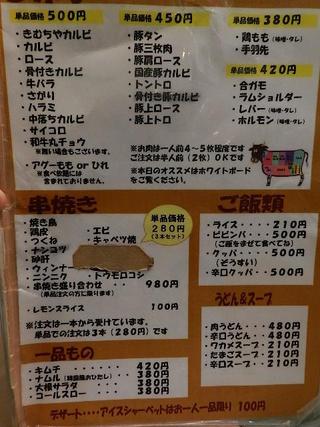 単品価格 500円
・きむちやカルビ
・カルビ
・ロース
・骨付きカルビ
・牛バラ
・さがり
・ハラミ
・中落ちカルビ
・サイコロ
・和牛丸チョウ
※無い場合もございます。
・アグーもも or ひれ
※食べ放題には
含まれておりません。
単品価格 450円
・豚タン
・豚三枚肉
・豚肩ロース
・国産豚カルビ
・トントロ
・骨付き豚カルビ
・豚上ロース
・豚上トロ
単品価格 380円
・鶏もも（味噌・タレ）
・手羽先
単品価格 420円
・合ガモ
・ラムショルダー
・レバー（味噌・タレ）
・ホルモン（味噌・タレ）
※お肉は一人前4～5枚程度です
ご注文は半人前（2枚）OKです
※本日のオススメはホワイトボード
をご覧ください。
串焼き
単品価格
280円
（3本セット）
・焼き鳥
・鶏皮
・つくね
・ナンコツ
・砂肝
・ウィンナー
・ニンニク
・エビ
・キャベツ焼
・トウモロコシ
・串焼き盛り合わせ ・・ 980円
（単品注文の方に限ります）
・レモンスライス 100円
※注文は一本から受けています。
単品での注文は3本（280円）です
一品もの
・キムチ ・・・・・・ 420円
・ナムル ・・ 380円
・大根サラダ ・・・・ 380円
・コールスロー ・・・ 380円
ご飯類
・ライス ・・・・ 210円
・ビビンバ ・・・ 500円
（ご飯をまぜて食べてね）
・クッパ ・・・・ 500円
（ぞうすい）
・辛口クッパ ・・ 500円
うどん&スープ
・肉うどん ・・・ 480円
・辛口うどん ・・ 480円
・ワカメスープ ・ 210円
・たまごスープ ・ 210円
・辛口スープ ・・ 210円
デザート・・・・アイスシャーベットはお一人一品限り 100円